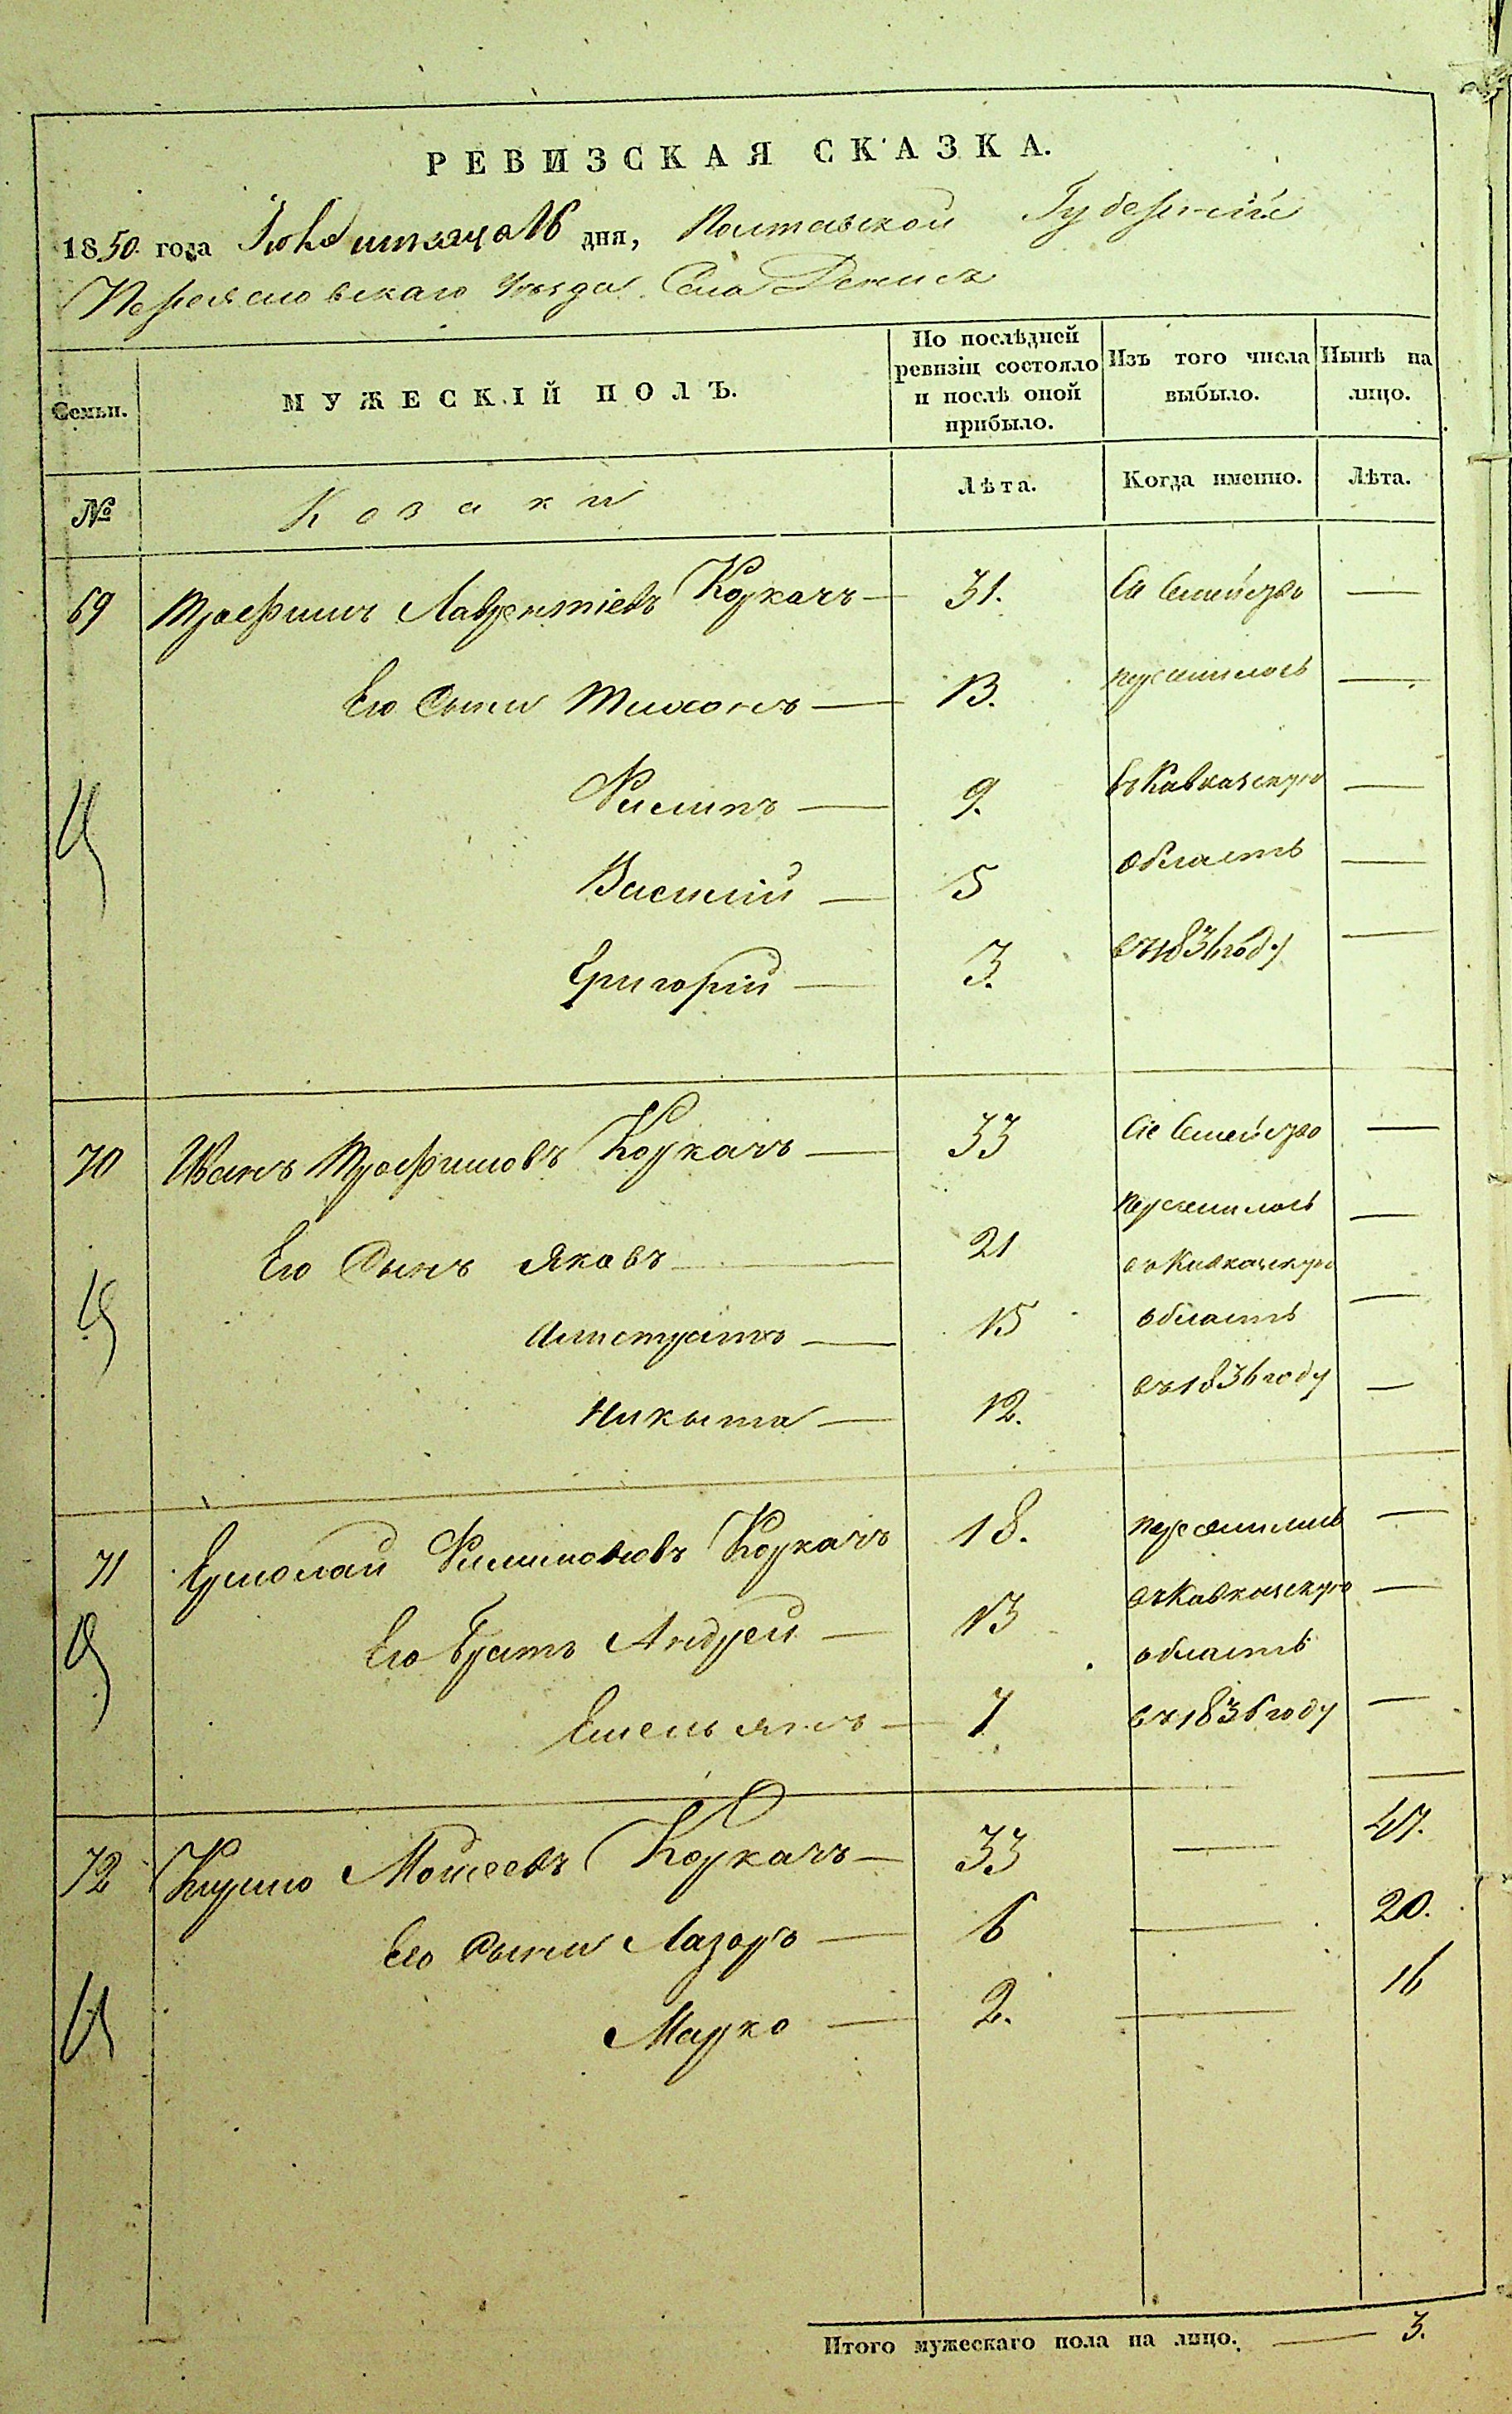 РЕВИЗСКАЯ СКАЗКА.
1850 года Июля мѣсяца 16 дня, Полтавской Губерніи
Переясловскаго Уѣзда Села Денисъ
Семьи.
МУЖЕСКІЙ ПОЛЪ.
По послѣдней ревизіи состояло и послѣ оной прибыло.
Изъ того числа выбыло.
Нынѣ на лицо.
№
Козаки
Лѣта.
Когда именно.
Лѣта.
69 Трофимъ Лаврентіевъ Коркачъ — 31. Сіе Семейство —
Его Сыни Тихонъ — 13. переселилось —
Филипъ — 9. въ Кавказскую —
Василій — 5 область —
Григорій — 3. въ 1836 году —
70 Иванъ Трофимовъ Коркачъ — 33 Сіе Семейство —
Его Сынъ Яковъ — 21 переселилось —
въ Кавказскую
Алистратъ — 15 область —
Никыта — 12. въ 1836 году —
71 Ермолай Филимоновъ Коркачъ 18. переселились —
Его Братъ Андрей — 13 въ Кавказскую —
область
Емельянъ — 7 въ 1836 году —
72 Моисеевъ Коркачъ — 33 — 47.
Его Сыни Лазоръ — 6 — 20.
Марко — 2. — 16
Итого мужескаго пола на лицо. — 3.